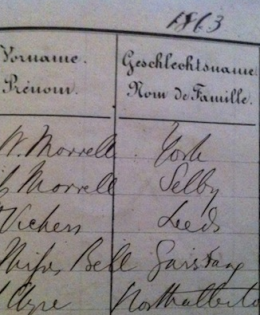 1863
Vorname. Geschlechtsname
Prénom. Nom de Famille.
W. Morrell York
Morrell Selby
Vickers Leeds
Miss Bell Garstang
Ayre Northallerto